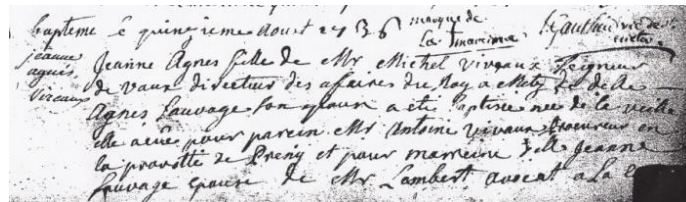 bapteme le quinzieme aoust 1736 marque de la marraine H gauthier vic de metz
jeanne agnes viveaux
Jeanne Agnes fille de Mr Michel Viveaux Seigneur
de vaux directeur des afaires du Roy a Metz et de de
Agnes Sauvage son epouse a eté baptisee nee de la veille
elle a eûe pour parein Mr Antoine vivaux procureur en
la provotté de Preny et pour marreine delle Jeanne
Sauvage epouse de Mr Lambert avocat a La